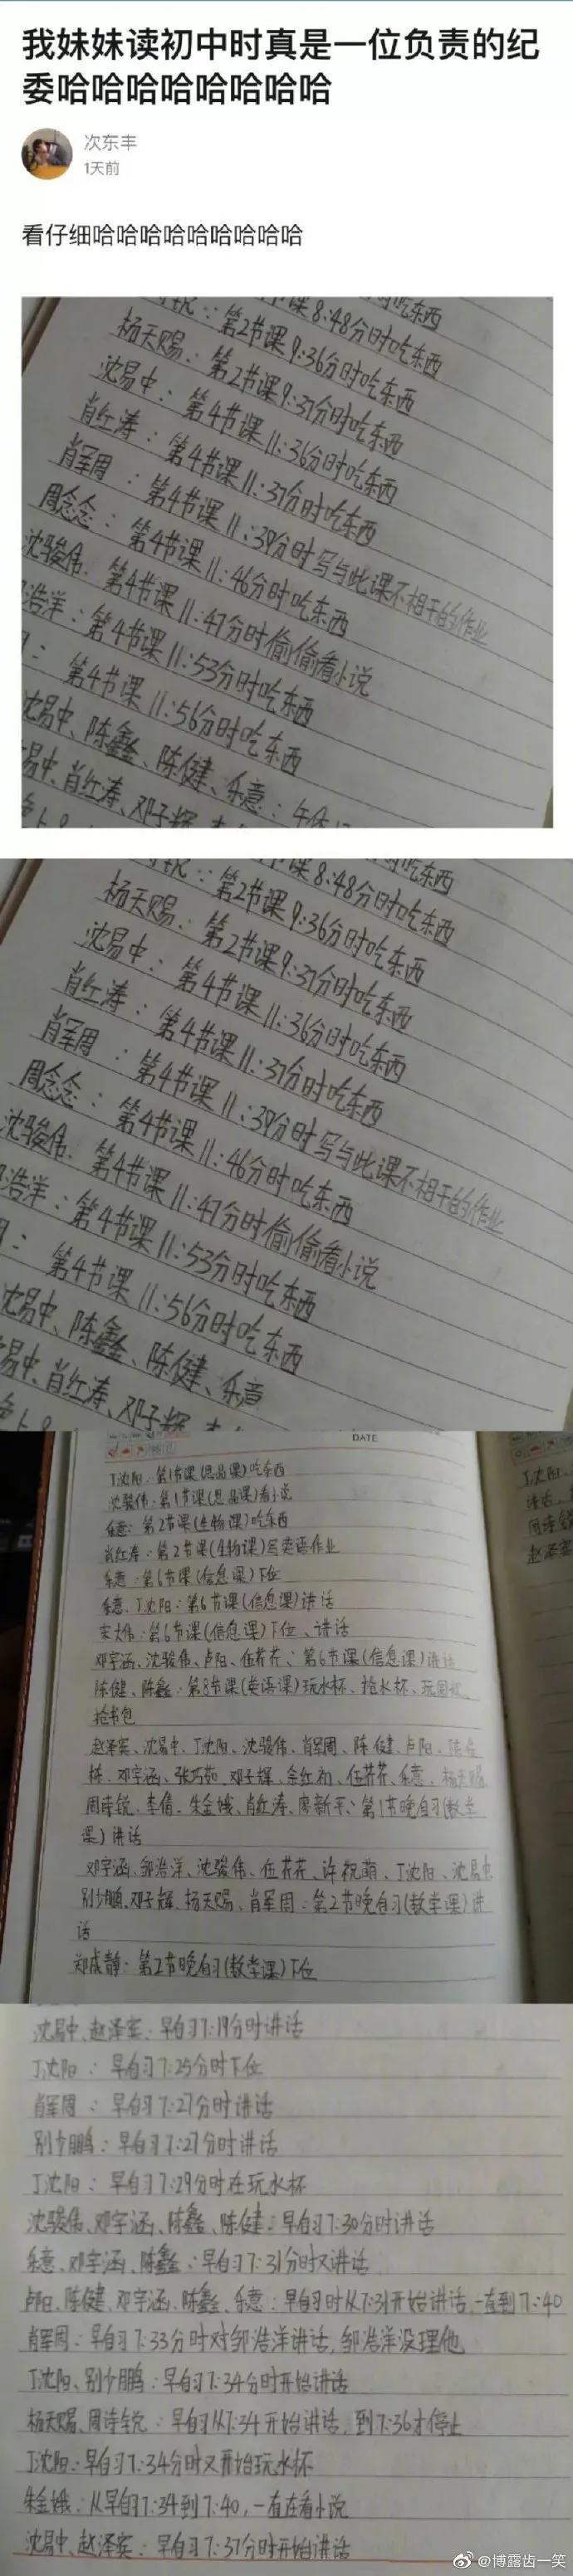 我妹妹读初中时真是一位负责的纪
委哈哈哈哈哈哈哈哈
次东丰
1天前
看仔细哈哈哈哈哈哈哈哈哈
锐：第2节课8:48分时吃东西
杨天赐：第2节课9:36分时吃东西
沈易中：第2节课9:37分时吃东西
肖红涛：第4节课11:36分时吃东西
肖军周：第4节课11:37分时吃东西
周念念：第4节课11:39分时写与此课不相干的作业
沈骏伟：第4节课11:46分时吃东西
浩洋：第4节课11:47分时偷偷看小说
：第4节课11:53分时吃东西
第4节课11:56分时吃东西
沈易中、陈鑫、陈健、乐意：午休
易中、肖红涛、邓子辉
锐：第2节课8:48分时吃东西
杨天赐：第2节课9:36分时吃东西
沈易中：第2节课9:37分时吃东西
肖红涛：第4节课11:36分时吃东西
肖军周：第4节课11:37分时吃东西
周念念：第4节课11:39分时写与此课不相干的作业
沈骏伟：第4节课11:46分时吃东西
浩洋：第4节课11:47分时偷偷看小说
：第4节课11:53分时吃东西
第4节课11:56分时吃东西
沈易中、陈鑫、陈健、乐意
易中、肖红涛、邓子辉
DATE
丁沈阳：第1节课(思品课)吃东西
沈骏伟：第1节课(思品课)看小说
乐意：第2节课(生物课)吃东西
肖红涛：第2节课(生物课)写英语作业
乐意：第6节课(信息课)下位
乐意、丁沈阳：第6节课(信息课)讲话
宋大伟：第6节课(信息课)下位、讲话
邓宇涵、沈骏伟、卢阳、伍芹芹：第6节课(信息课)讲话
陈健、陈鑫：第8节课(英语课)玩水杯、抢水杯、玩圆规、
抢书包
赵泽宾、沈易中、丁沈阳、沈骏伟、肖军周、陈健、卢阳、陈鑫
栋、邓宇涵、张巧茹、邓子辉、余红初、伍芹芹、乐意、杨天赐
周诗锐、李倩、朱金娥、肖红涛、廖新平：第1节晚自习(数学
课)讲话
邓宇涵、邹浩洋、沈骏伟、伍芹芹、许祝萌、丁沈阳、沈易中
别少鹏、邓子辉、杨天赐、肖军周：第2节晚自习(数学课)讲
话
郑成静：第2节晚自习(数学课)下位
丁沈阳
周诗锐
赵泽宾
沈易中、赵泽宾：早自习7:19分时讲话
丁沈阳：早自习7:25分时下位
肖军周：早自习7:27分时讲话
别少鹏：早自习7:27分时讲话
丁沈阳：早自习7:29分时在玩水杯
沈骏伟、邓宇涵、陈鑫、陈健：早自习7:30分时讲话
乐意、邓宇涵、陈鑫：早自习7:31分时又讲话
卢阳、陈健、邓宇涵、陈鑫、乐意：早自习时从7:31开始讲话，一直到7:40
肖军周：早自习7:33分时对邹浩洋讲话，邹浩洋没理他
丁沈阳、别少鹏：早自习7:34分时开始讲话
杨天赐、周诗锐：早自习从7:34开始讲话，到7:36才停止
丁沈阳：早自习7:34分时又开始玩水杯
朱金娥：从早自习7:34到7:40，一直在看小说
沈易中、赵泽宾：早自习7:37分时开始讲话
@博露齿一笑